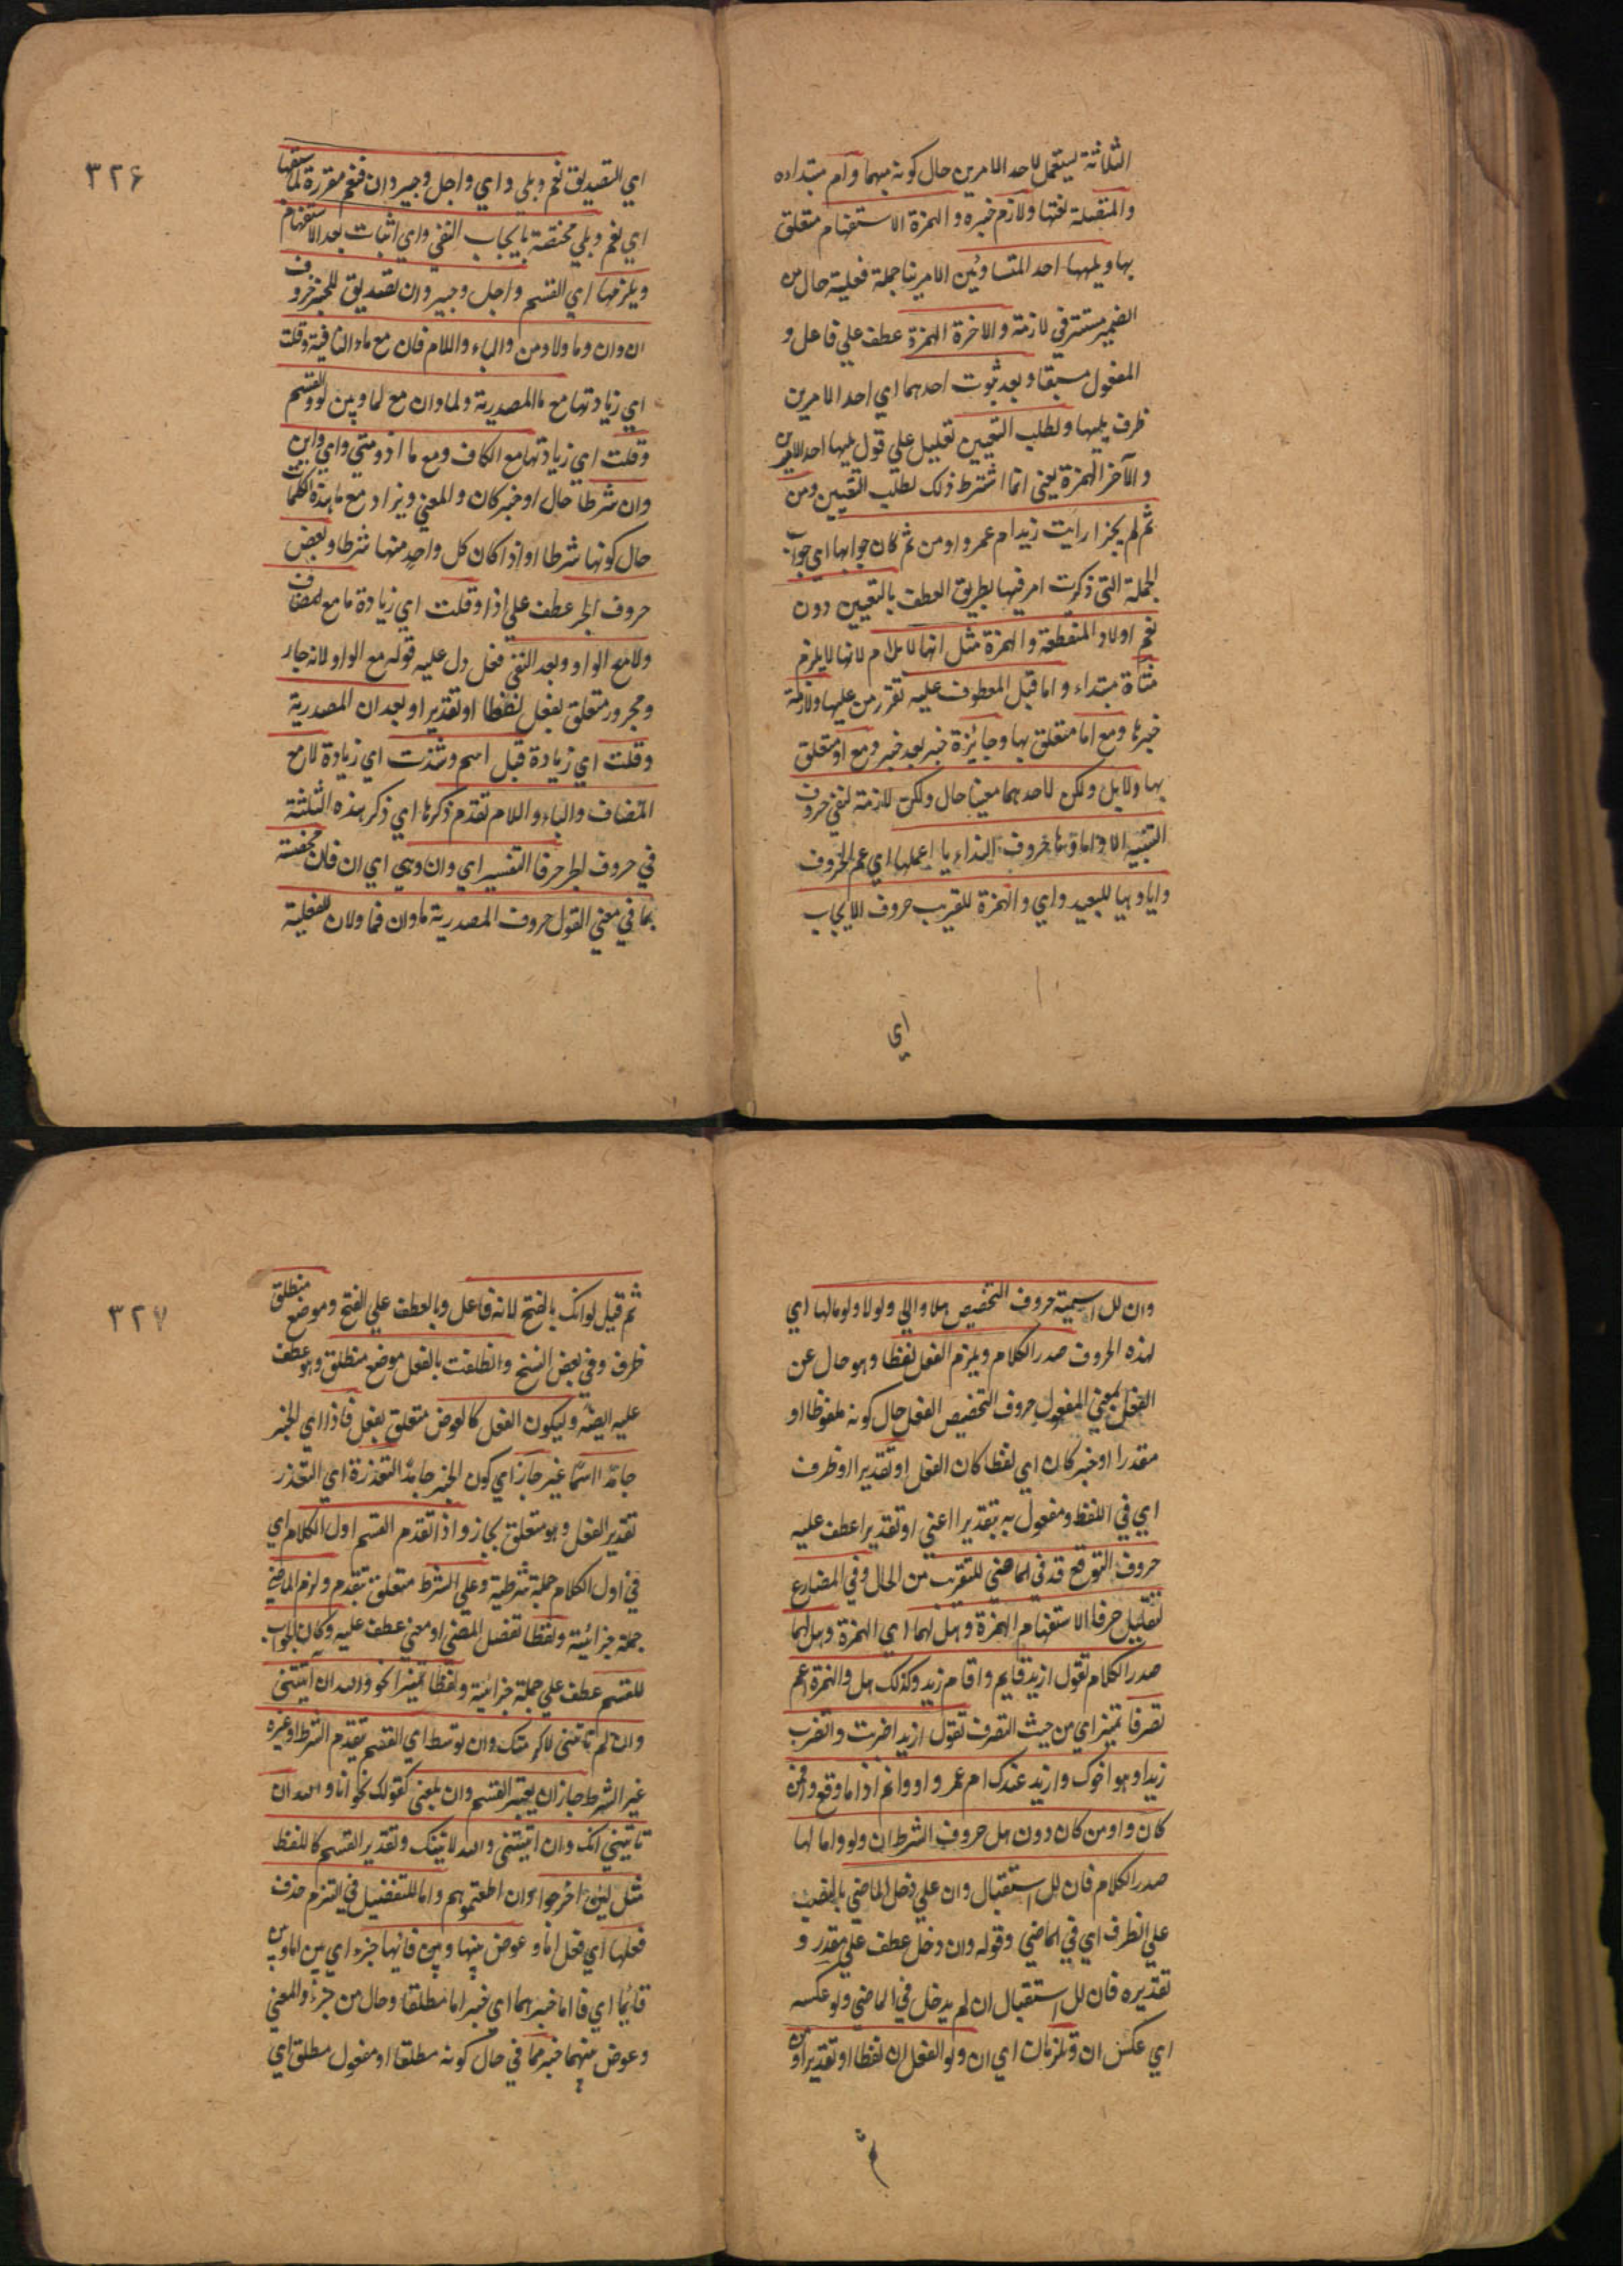 الثلاثة يستعمل لاحد الامرين حال كونه مبهما وام مبتداءه
والمتصلة نعتها ولازم خبره والهمزة الاستفهام متعلق
بها ويليها احد المتساوئين الامرينا جملة فعلية حال من
الضمير مستتر في لازمة والاخرة الهمزة عطف علي فاعل و
المفعول مسبقا وبعد ثبوت احدهما اي احد الامرين
ظرف يليها ولطلب التعيين تعليل علي قول يليها احد الامرين
والآخر الهمزة يعني انما اشترط ذلك لطلب التعيين ومن
ثم لم يجز ارايت زيدا ام عمروا ومن ثم كان جوابها اي جواب
الجملة التي ذكرت ام فيها بطريق العطف بالتعيين دون
نعم اولاد المنقطعة والهمزة مثل انها لابل ام لانها لايلزم
مبتداء واما قبل المعطوف عليه تقرر من عليها ولازمة
خبرها ومع اما متعلق بها وجايزة خبر بعد خبر ومع او متعلق
بها ولابل ولكن لاحدهما معينا حال ولكن لازمة لنفي حروف
التنبيه الا واما وها حروف النداء يا اعملها اي عم الحروف
وايا وهيا للبعيد واي والهمزة للقريب حروف الايجاب
اي
٣٢۶
اي التصديق نعم وبلي واي واجل وجير وان فنعم مقررة لما سبقها
اي نعم وبلي مختصة بايجاب النفي واي اثبات بعد الاستفهام
ويلزمها اي القسم واجل وجير وان تصديق للمخبر حروف
ان وان وما ولا ومن والباء واللام فان مع ماء النافية وقلت
اي زيادتها مع ما المصدرية ولما وان مع لما وبين لو والقسم
وقلت اي زيادتها مع الكاف ومع ما اذ ومتي واي واين
وان شرطا حال او خبر كان والمعني ويزاد مع ما هذه الكلمات
حال كونها شرطا او اذا كان كل واحد منها شرطا وبعض
حروف الجر عطف علي اذا وقلت اي زيادة ما مع المضاف
ولا مع الواو وبعد النفي فعل دل عليه قوله مع الواو لانه جار
ومجرور متعلق بفعل لفظا او تقديرا وبعد ان المصدرية
وقلت اي زيادة قبل اسم وشذت اي زيادة لا مع
المضاف والباء واللام تقدم ذكرها اي ذكر هذه الثلثة
في حروف الجر حرفا التفسير اي وان وهي اي ان فان مختصة
بما في معني القول حروف المصدرية ما وان فما ولان للفعلية
وان للاسمية حروف التحضيض هلا والي ولولا ولوما لها اي
لهذه الحروف صدر الكلام ويلزم الفعل لفظا وهو حال عن
الفعل بمعني المفعول حروف التحضيض الفعل حال كونه ملفوظا او
مقدرا او خبر كان اي لفظا كان الفعل او تقديرا او ظرف
اي في اللفظ ومفعول به بتقديرا اعني او تقديرا عطف عليه
حروف التوقع قد في الماضي للتقريب من الحال وفي المضارع
تقليل حرفا الاستفهام الهمزة وهل لهما اي الهمزة وهل لهما
صدر الكلام تقول ازيد قايم واقام زيد وكذلك هل والهمزة اعم
تصرفا تميز اي من حيث التصرف تقول ازيدا ضربت واتضرب
زيدا وهو اخوك وازيد عندك ام عمرو واو واثم اذا ما وقع وافمن
كان واومن كان دون هل حروف الشرط ان ولو واما لها
صدر الكلام فان للاستقبال وان علي دخل الماضي بالنصب
علي الظرف اي في الماضي وقوله وان دخل عطف علي مقدر و
تقديره فان للاستقبال ان لم يدخل في الماضي ولو عكسه
اي عكس ان وتلزمان اي ان ولو الفعل ان لفظا او تقديرا ومن
ثم
٣٢٧
ثم قيل لو انك بالفتح لانه فاعل وبالعطف علي الفتح وموضع منطلق
ظرف وفي بعض النسخ وانطلقت بالفعل موضع منطلق وهو عطف
عليه ايضا وليكون الفعل كالعوض متعلق بفعل فاذا اي الخبر
جامدا اسما غير جاز اي كون الخبر جامدا لتعذره اي التعذر
تقدير الفعل وهو متعلق بجاز واذا تقدم القسم اول الكلام اي
في اول الكلام جملة شرطية وعلي الشرط متعلق بتقدم ولزم الماضي
جملة جزائية ولفظا تفصل المضي او معني عطف عليه وكان الجواب
للقسم عطف علي جملة جزائية ولفظا تميز نحو والله ان آتيتني
وان لم تاتني لاكرمتك وان توسط اي القسم بتقدم الشرط او غيره
غير الشرط جاز ان يعتبر القسم وان يلغي كقولك نحو انا والله ان
تاتيني اتك وان اتيتني والله لاتينك وتقدير القسم كاللفظ
مثل لئن اخرجوا وان اطعتموهم واما للتفصيل في التزم حذف
فعلها اي فعل اما وعوض بينها وبين فائها جزء اي بين اما وبين
فائها اي فا اما خبرهما اي خبر اما مطلقا وحال من جزء والمعني
وعوض بينهما خبر مما في حال كونه مطلقا او مفعول مطلق اي